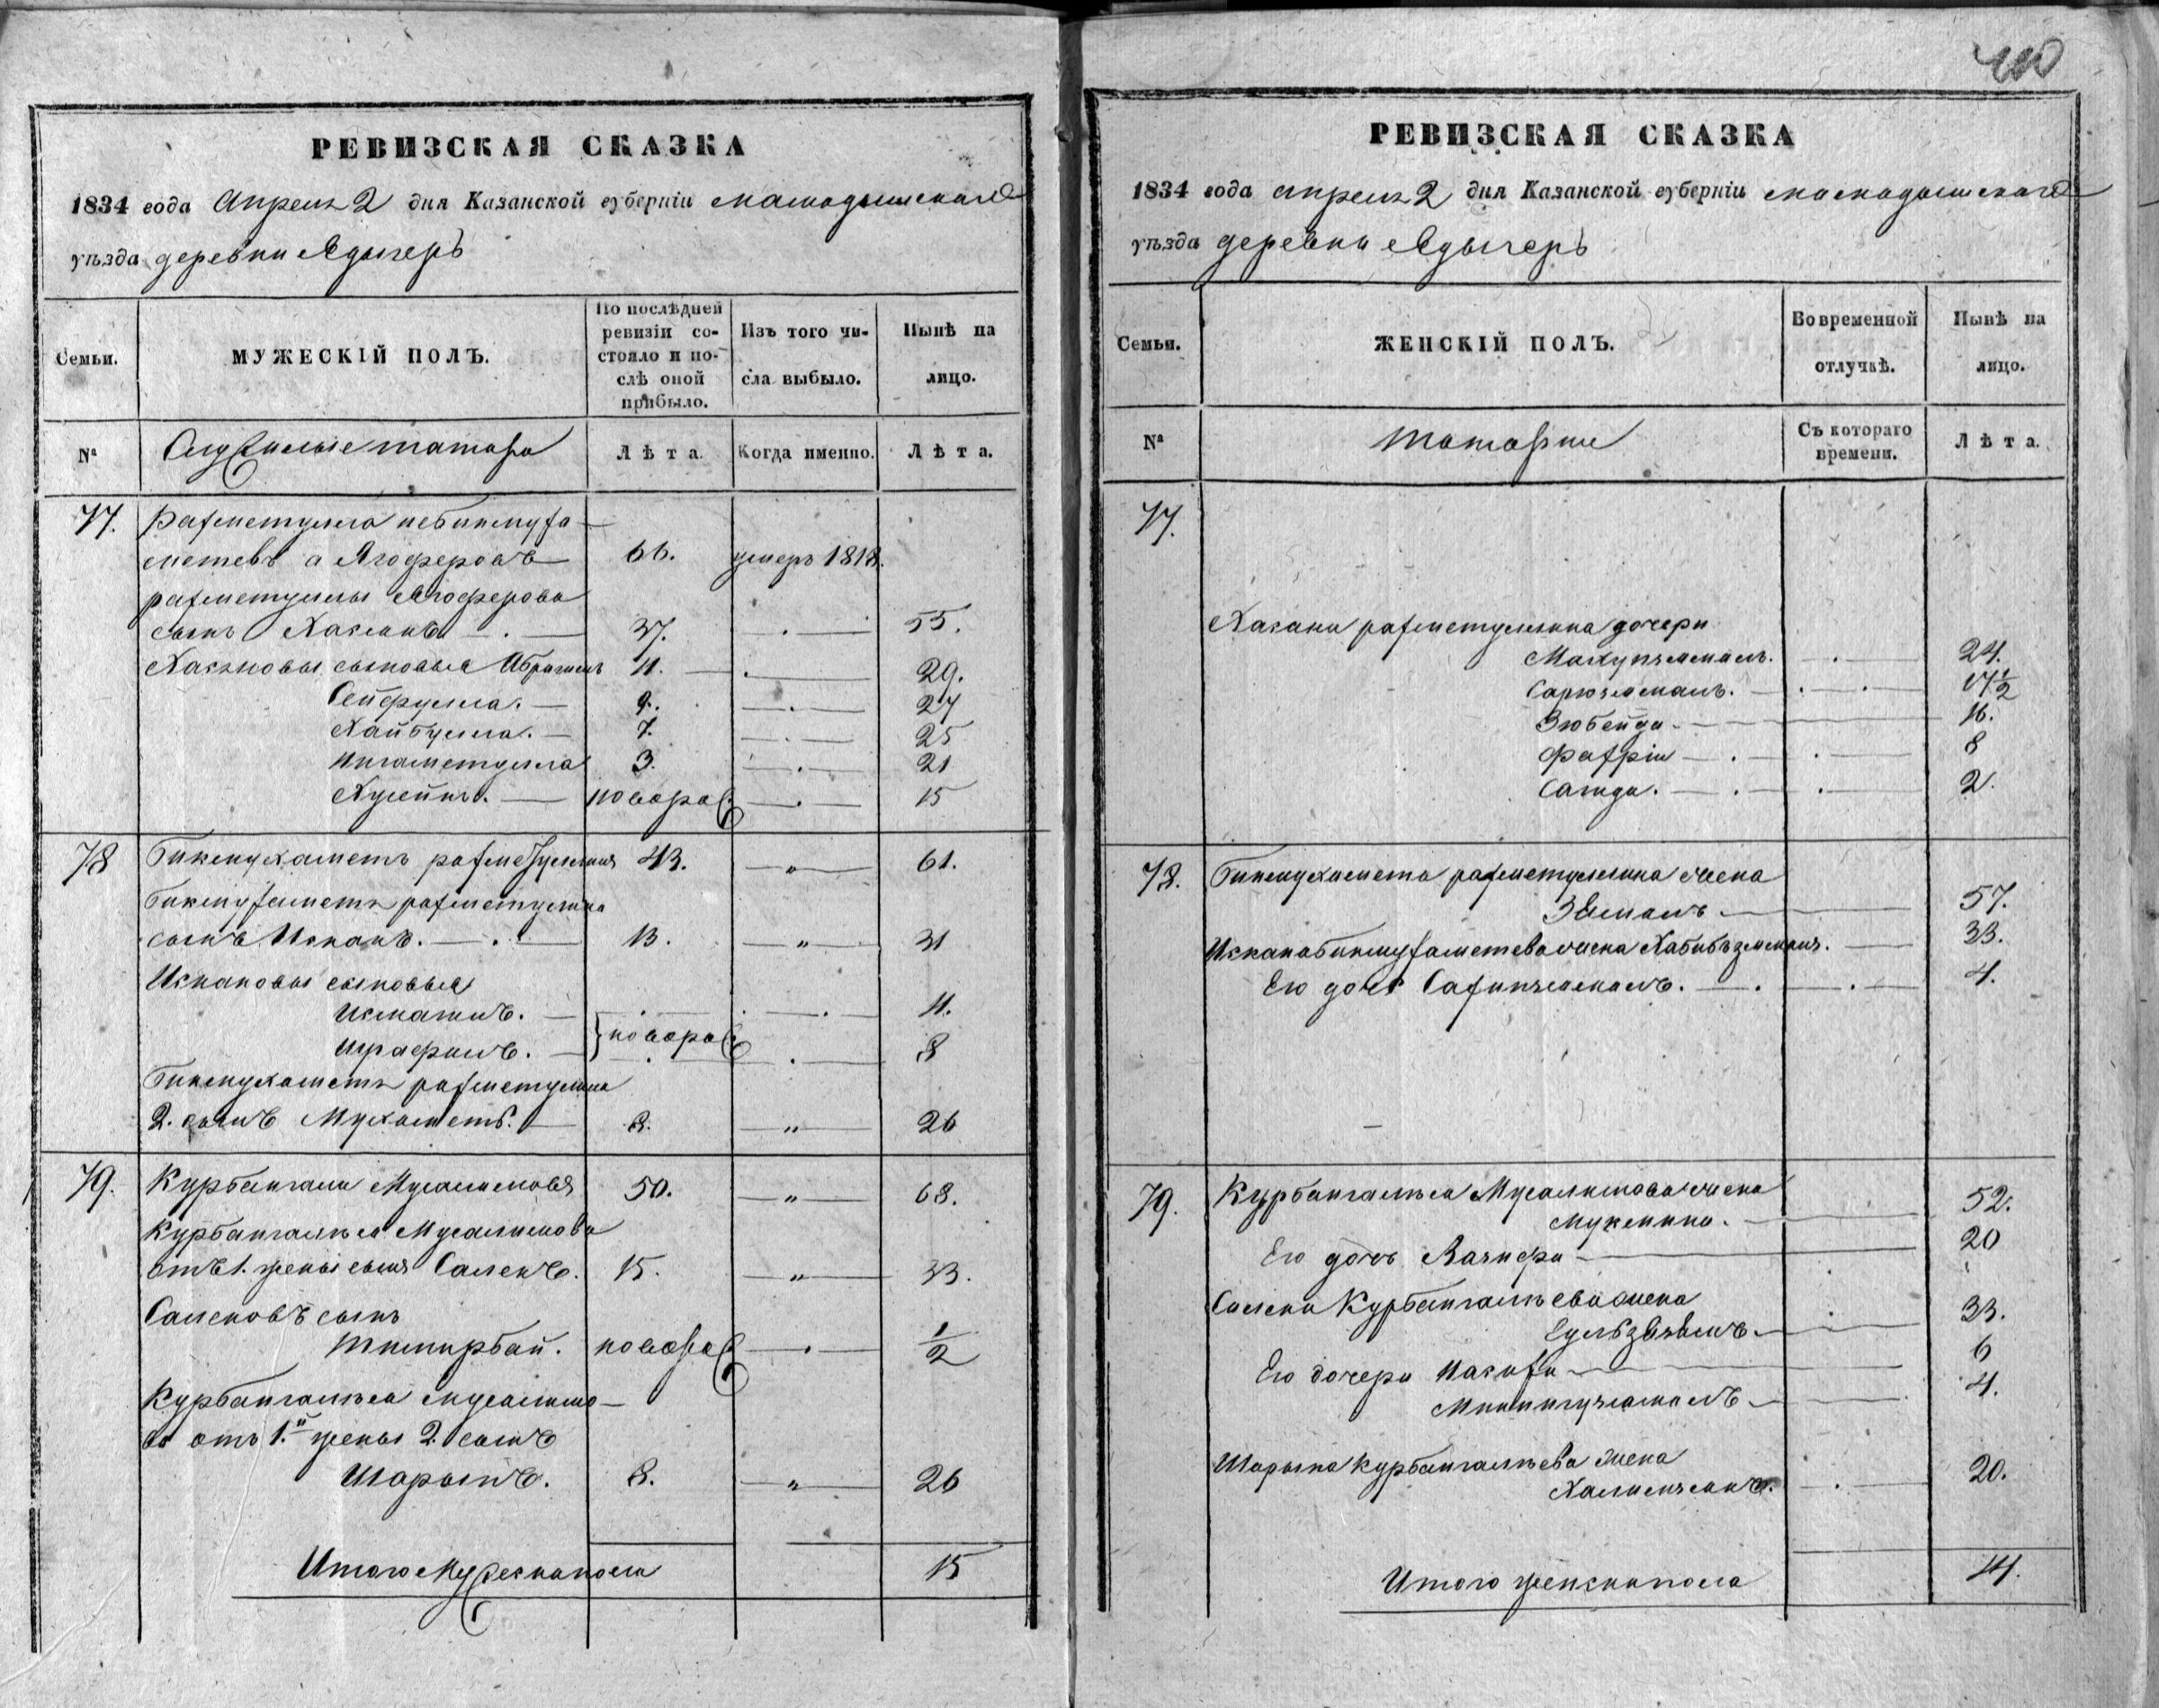 РЕВИЗСКАЯ СКАЗКА
1834 года Апреля 2 дня Казанской губерніи Мамадышскаго
уѣзда деревни Ядыгеръ
Семьи. МУЖЕСКІЙ ПОЛЪ. По послѣдней ревизіи состояло и послѣ оной прибыло. Изъ того числа выбыло. Нынѣ на лицо.
№ Служилые татара Лѣта. Когда именно. Лѣта.
77. Рахметулла
а Ягоферовъ 66. умеръ 1818.
рахметуллы Ягоферова
сынъ Хасанъ 37. 55.
Хасановы сыновья Ибрагимъ 11. 29.
Сейфулла. 9. 27
Хайбулла. 7. 25
Нигаметулла 3. 21
Хусейнъ. новорож 15
78 Бикмухаметъ рахметуллинъ 43. „ 61.
Бикмухаметя рахметуллина
сынъ Искакъ. 13. „ 31
Искаковы сыновья
Исмагилъ. 11.
Исрафилъ. новорож 8
Бикмухаметя рахметуллина
2. сынъ Мухаметъ. 8. „ 26
79. Курбангали Мусалимовъ 50. „ 68.
Курбангалѣя Мусалимова
отъ 1. жены сынъ Салекъ. 15. „ 33.
Салековъ сынъ
Тимирбай. новорож 1/2
Курбангалѣя Мусалимо-
ва отъ 1.й жены 2. сынъ
Шарыпъ. 8. „ 26
Итого Мужеска пола 15
РЕВИЗСКАЯ СКАЗКА
1834 года апреля 2 дня Казанской губерніи Мамадышскаго
уѣзда деревни Ядыгеръ
Семьи. ЖЕНСКІЙ ПОЛЪ. Во временной отлучкѣ. Нынѣ на лицо.
№ Татарки Съ котораго времени. Лѣта.
77.
Хасана рахметуллина дочери
24.
17 1/2
Зюбейда 16.
Фахрія 8
Сагида. 2.
78. Бикмухамета рахметуллина жена
57.
Искака бикмухаметева жена Хабибъземалъ. 33.
Его дочь 4.
79. Курбангалѣя Мусалимова жена
Мукмина. 52.
Его дочь 20
Салека Курбангалѣева жена
33.
Его дочери 6
4.
Шарыпа Курбангалѣева жена
20.
Итого женска пола 14.